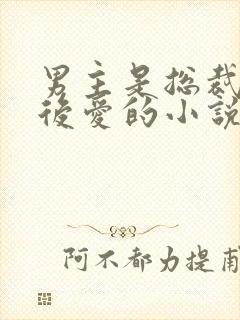 男主是总裁
後爱的小説
阿不都力提甫